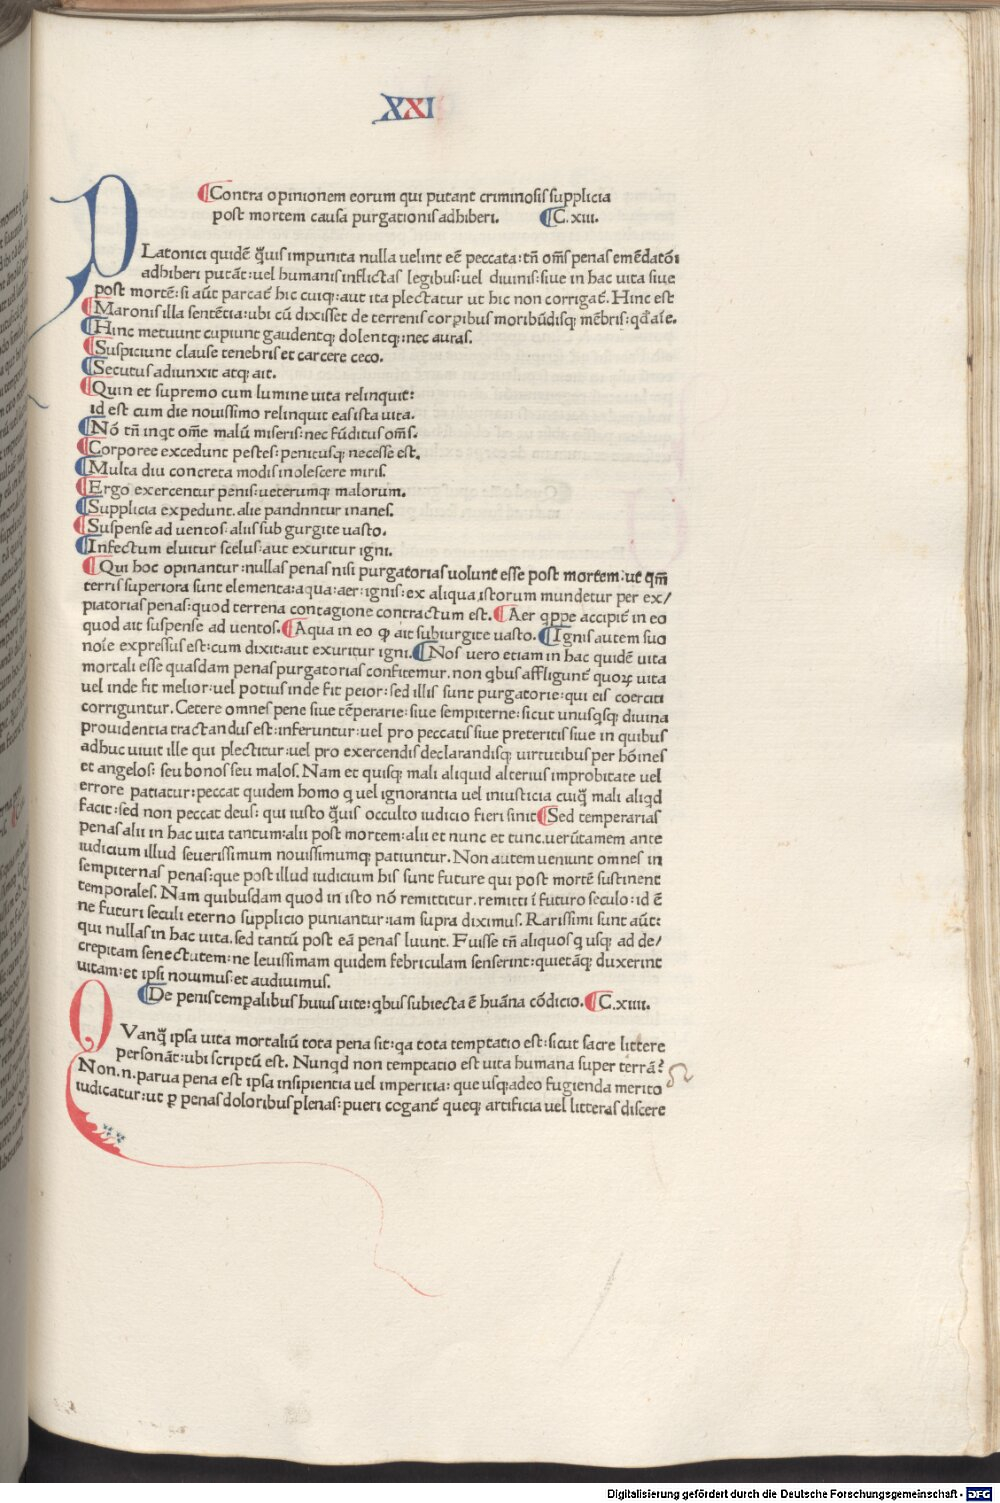 XXI
Contra opinionem eorum qui putant criminosis supplicia
post mortem causa purgationis adhiberi. C. xiii.
PLatonici quidē q̄uis impunita nulla uelint eē peccata: tn̄ oms̄ penas emēdatōi
adhiberi putāt: uel humanis inflictas legibus: uel diuinis: siue in hac uita siue
post mortē: si aūt parcat̄ hic cuiq;: aut ita plectatur ut hic non corrigat̄. Hinc est
Maronis illa sentētia: ubi cū dixisset de terrenis corꝑibus moribūdisq; mēbris: qd̄ aīe.
Hinc metuunt cupiunt gaudentq; dolentq;: nec auras.
Suspiciunt clause tenebris et carcere ceco.
Secutus adiunxit atq; ait.
Quin et supremo cum lumine uita relinquit:
id est cum die nouissimo relinquit eas ista uita.
Nō tn̄ inqt ome̅ malū miseris: nec fūditus oms̄.
Corporee excedunt pestes: penitusq; necesse est.
Multa diu concreta modis inolescere miris.
Ergo exercentur penis: ueterumq; malorum.
Supplicia expedunt. alie pandnntur inanes.
Suspense ad uentos: aliis sub gurgite uasto.
Infectum eluitur scelus: aut exuritur igni.
Qui hoc opinantur: nullas penas nisi purgatorias uolunt esse post mortem: ut qm̄
terris superiora sunt elementa: aqua: aer: ignis: ex aliqua istorum mundetur per ex/
piatorias penas: quod terrena contagione contractum est. Aer qppe accipit̄ in eo
quod ait suspense ad uentos. Aqua in eo ꝙ ait subiurgite uasto. Ignis autem suo
noīe expressus est: cum dixit: aut exuritur igni. Nos uero etiam in hac quidē uita
mortali esse quasdam penas purgatorias confitemur. non qbus affligunt̄ quoꝝ uita
uel inde fit melior: uel potius inde fit peior: sed illis sunt purgatorie: qui eis coerciti
corriguntur. Cetere omnes pene siue tēperarie: siue sempiterne: sicut unusqsq; diuina
prouidentia tractandus est: inferuntur: uel pro peccatis siue preteritis siue in quibus
adhuc uiuit ille qui plectitur: uel pro exercendis declarandisq; uirtutibus per hōines
et angelos: seu bonos seu malos. Nam et quisq; mali aliquid alterius improbitate uel
errore patiatur: peccat quidem homo q uel ignorantia uel iniusticia cuiq̄ mali aliqd
facit: sed non peccat deus: qui iusto q̄uis occulto iudicio fieri sinit Sed temperarias
penas alii in hac uita tantum: alii post mortem: alii et nunc et tunc. uerūtamem ante
iudicium illud seuerissimum nouissimumq; patiuntur. Non autem ueniunt omnes in
sempiternas penas: que post illud iudicium his sunt future qui post mortē sustinent
temporales. Nam quibusdam quod in isto nō remittitur. remitti ī futuro seculo: id ē
ne futuri seculi eterno supplicio puniantur: iam supra diximus. Rarissimi sunt aūt:
qui nullas in hac uita. sed tantū post eā penas luunt. Fuisse tn̄ aliquos q usq; ad de/
crepitam senectutem: ne leuissimam quidem febriculam senserint: quietāq; duxerint
uitam: et ipsi nouimus: et audiuimus.
De penis temꝑalibus huius uite: qbus subiecta ē huāna cōdicio. C. xiiii.
QVanq̄ ipsa uita mortaliū tota pena sit: qa tota temptatio est: sicut sacre littere
personāt: ubi scriptū est. Nunqd non temptatio est uita humana super terrā?
Non. n. parua pena est ipsa insipientia uel imperitia: que usq;adeo fugienda merito
iudicatur: ut ꝑ penas doloribus plenas: pueri cogant̄ queq; artificia uel litteras discere
Digitalisierung gefördert durch die Deutsche Forschungsgemeinschaft - DFG